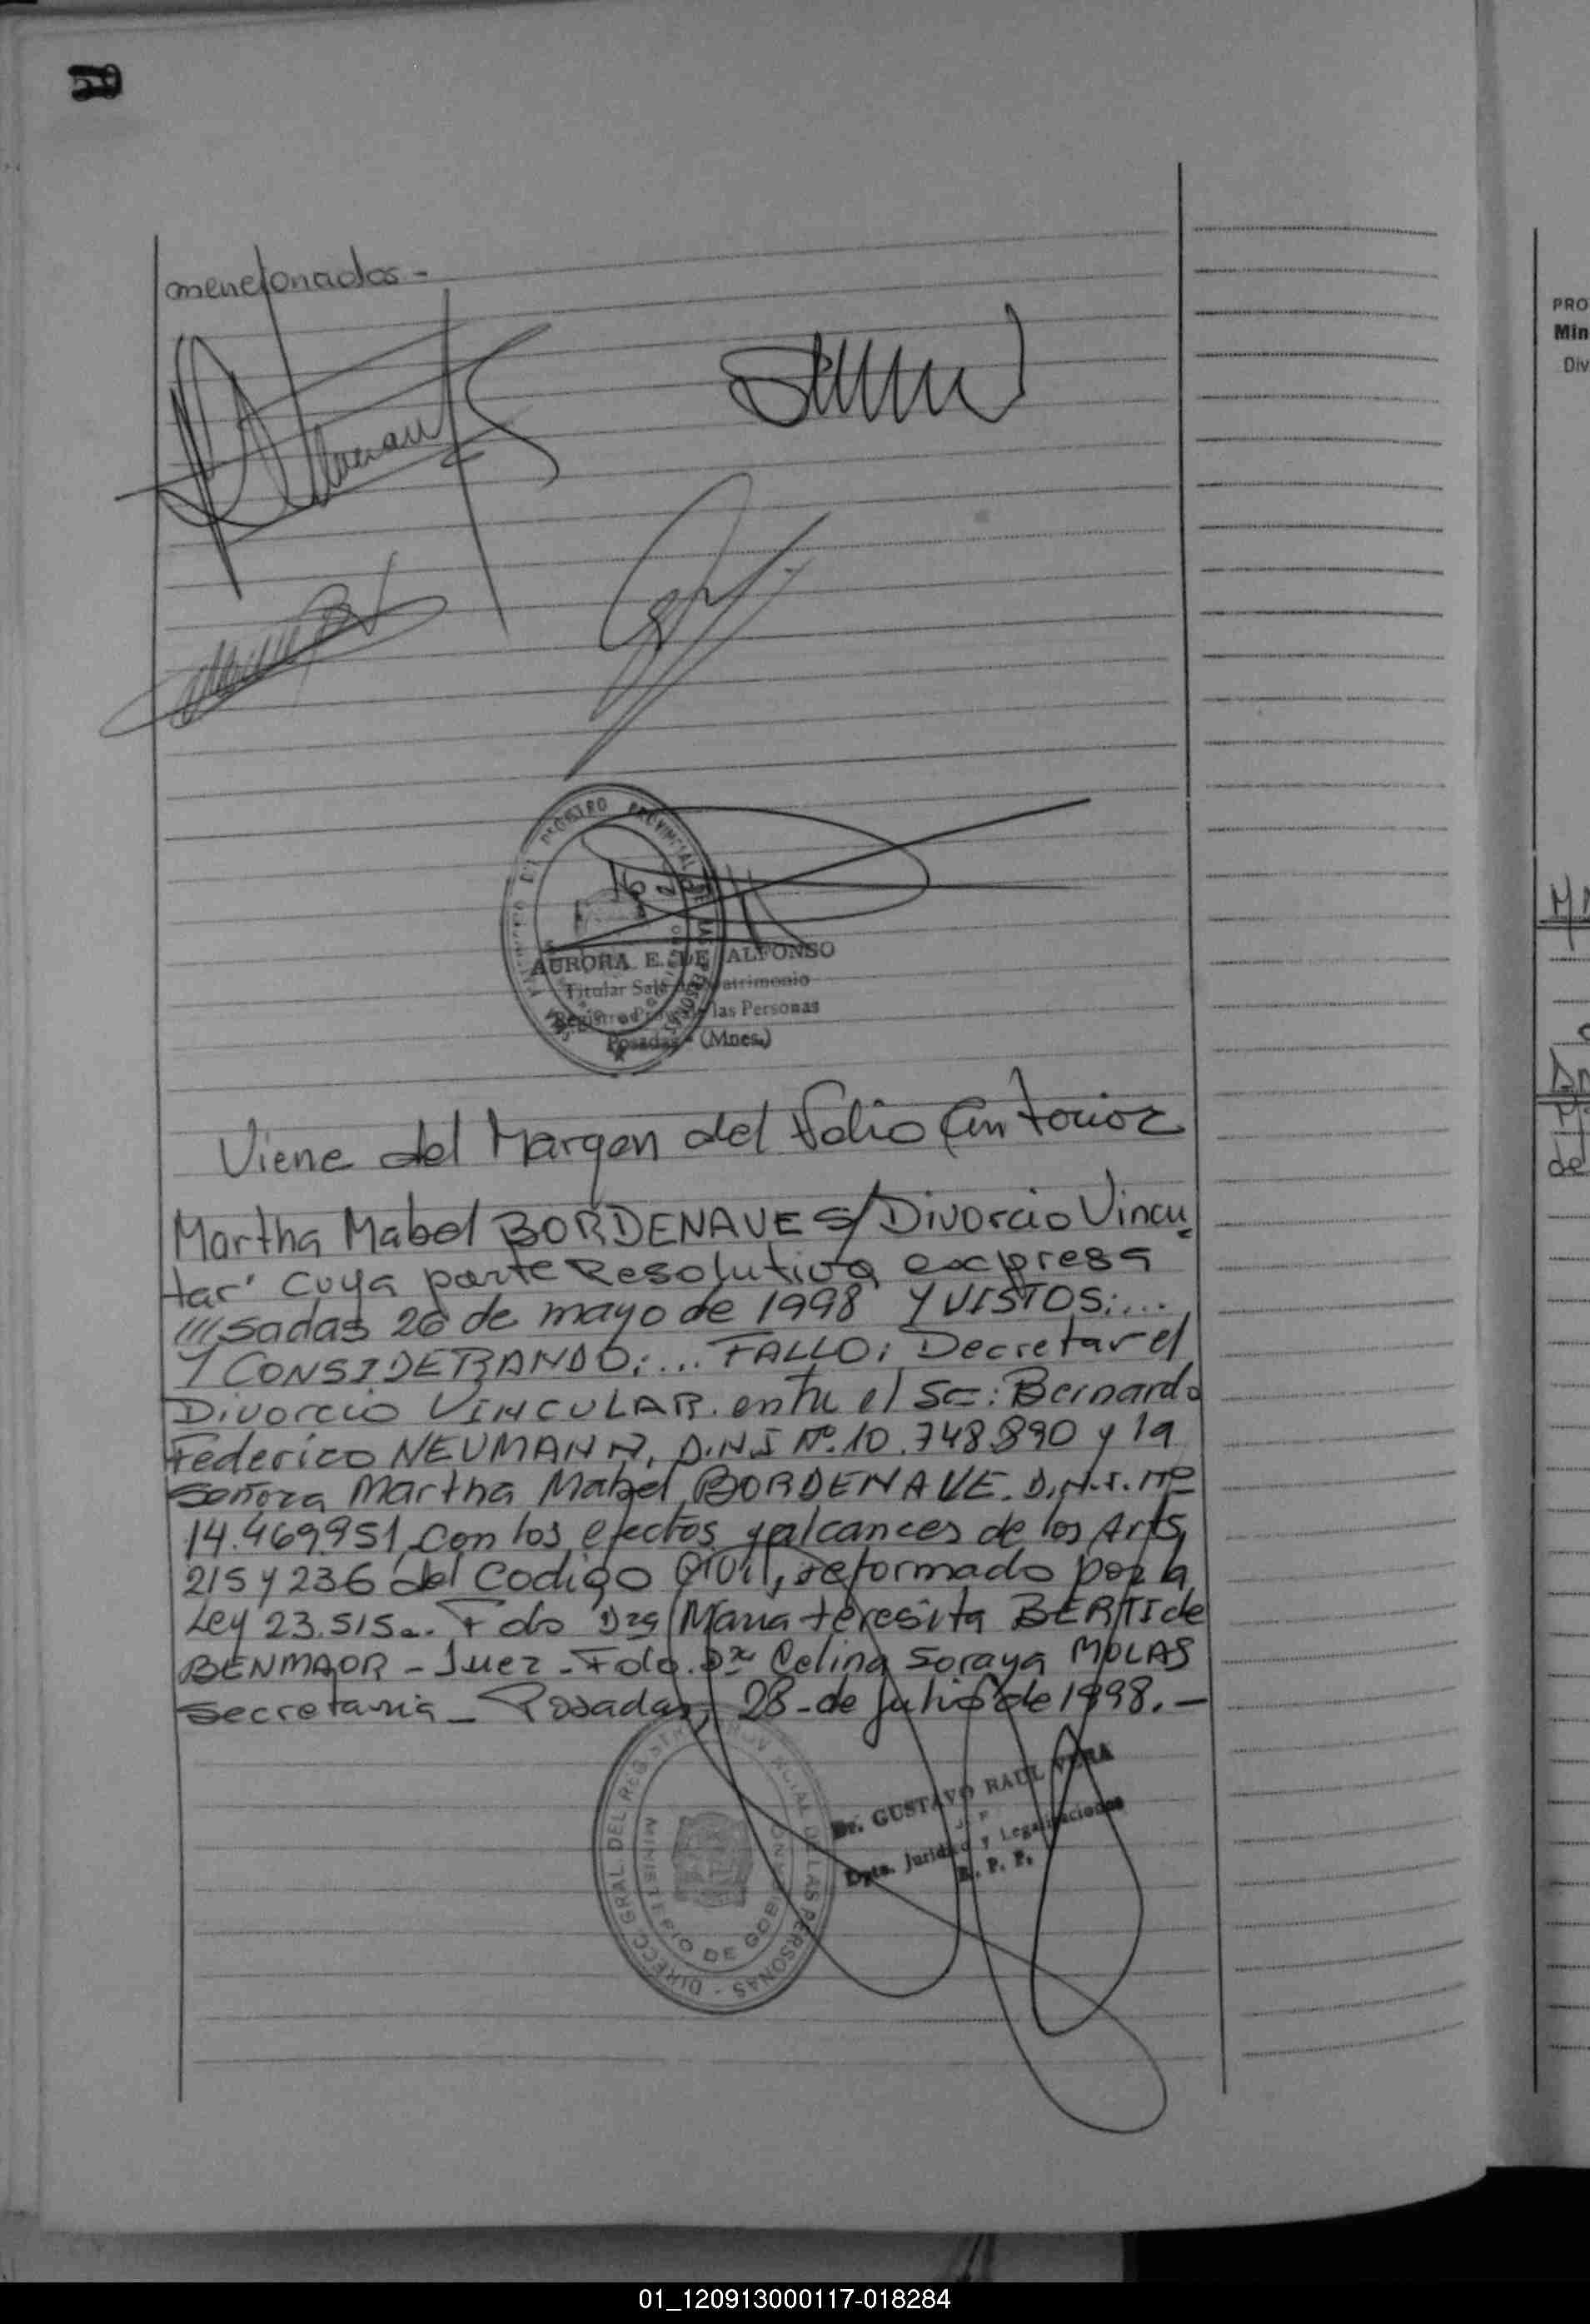 59
mencionados-
DEL REGISTRO PROVINCIAL DE LAS PERSONAS
AURORA E. DE ALFONSO
Titular Sala de Matrimonio
Registro Prov. de las Personas
Posadas - (Mnes.)
Viene del Margen del Folio Anterior
Martha Mabel BORDENAVE S/Divorcio Vincu
lar" cuya parte Resolutiva expresa
///sadas 26 de mayo de 1998 Y VISTOS:...
Y CONSIDERANDO:... FALLO: Decretar el
Divorcio VINCULAR. entre el Sr: Bernardo
Federico NEUMANN, D.N.I Nº.10.748.890 y la
Señora Martha Mabel BORDENAVE. D.N.I. Nº
14.469.951, con los efectos y alcances de los Arts,
215 y 236 del Codigo Civil, reformado por la
Ley 23.515.-. Fdo Dra Maria teresita BERTI de
BENMAOR - Juez - Fdo. Dra Celina Soraya MOLAS
Secretaria - Posadas, 28 - de Julio de 1998. -
DIRECC. GRAL. DEL REGISTRO PROVINCIAL DE LAS PERSONAS -
MINISTERIO DE GOBIERNO
Dr. GUSTAVO RAUL VERA
Dpto. Juridico y Legalizaciones
R. P. P.
PRO
Min
Div
de
01_120913000117-018284